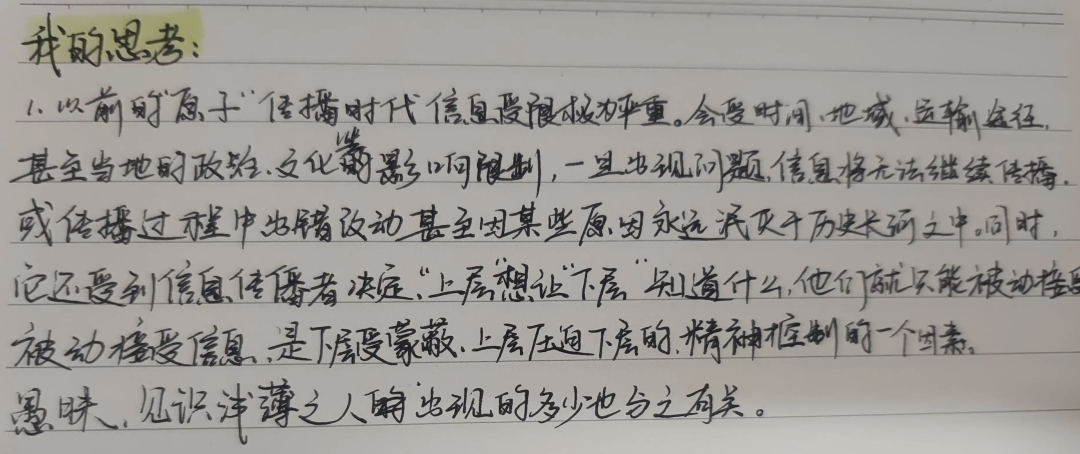 我的思考：
1. 以前的"原子"传播时代信息受限极为严重。会受时间、地域、运输途径、
甚至当地的政治、文化等影响限制，一旦出现问题，信息将无法继续传播，
或传播过程中出错改动甚至因某些原因永远泯灭于历史长河之中。同时，
它还受到信息传播者决定，"上层"想让"下层"知道什么，他们就只能被动接受
被动接受信息，是下层受蒙蔽、上层压迫下层的，精神控制的一个因素。
愚昧、见识浅薄之人的出现的多少也与之有关。